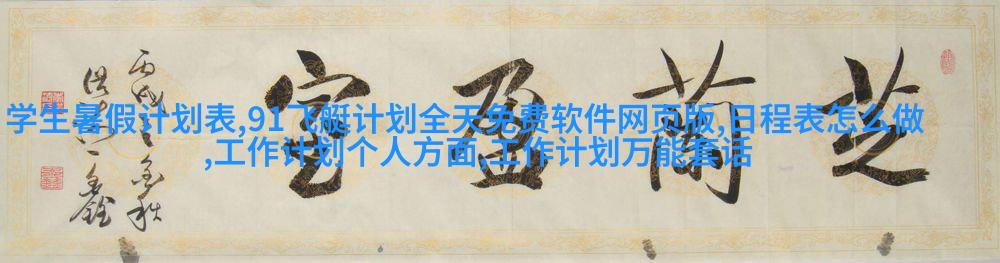 芝蘭盈室
丙戌之金秋
学生暑假计划表,91飞艇计划全天免费软件网页版,日程表怎么做
,工作计划个人方面,工作计划万能套话